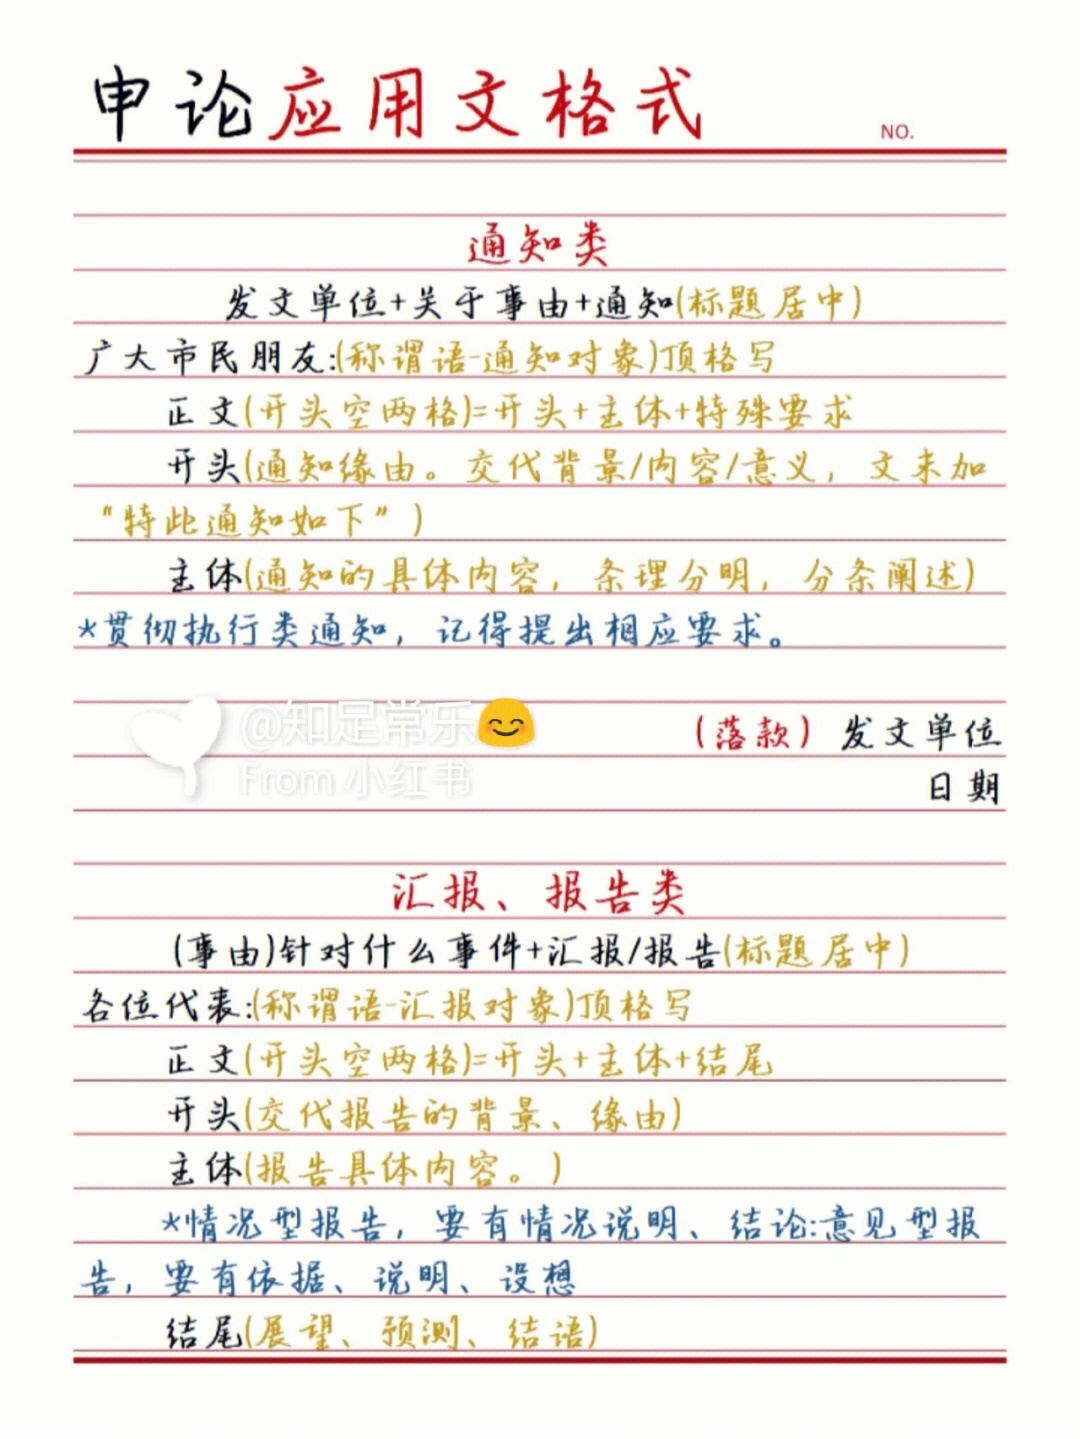 申论应用文格式
NO.
通知类
发文单位+关于事由+通知(标题居中)
广大市民朋友:(称谓语-通知对象)顶格写
正文(开头空两格)=开头+主体+特殊要求
开头(通知缘由。交代背景/内容/意义，文末加
“特此通知如下”)
主体(通知的具体内容，条理分明，分条阐述)
*贯彻执行类通知，记得提出相应要求。
@知足常乐😊
From 小红书
(落款) 发文单位
日期
汇报、报告类
(事由)针对什么事件+汇报/报告(标题居中)
各位代表:(称谓语-汇报对象)顶格写
正文(开头空两格)=开头+主体+结尾
开头(交代报告的背景、缘由)
主体(报告具体内容。)
*情况型报告，要有情况说明、结论:意见型报
告，要有依据、说明、设想
结尾(展望、预测、结语)